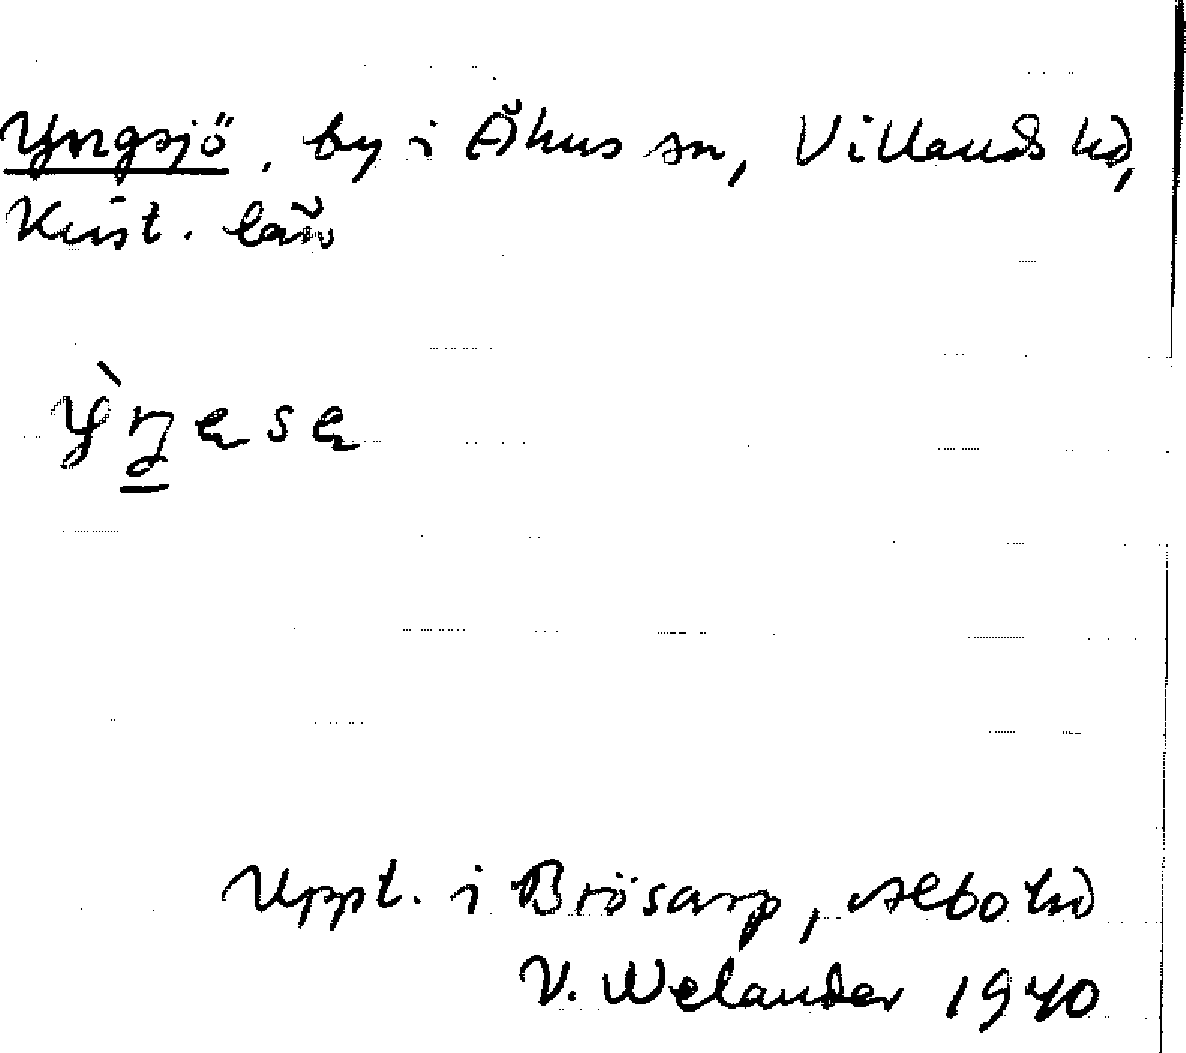 Yngsjö, by i Åhus sn, Villands hd,
Krist. län
Uppt. i Brösarp, Albo hd
V. Welander 1940